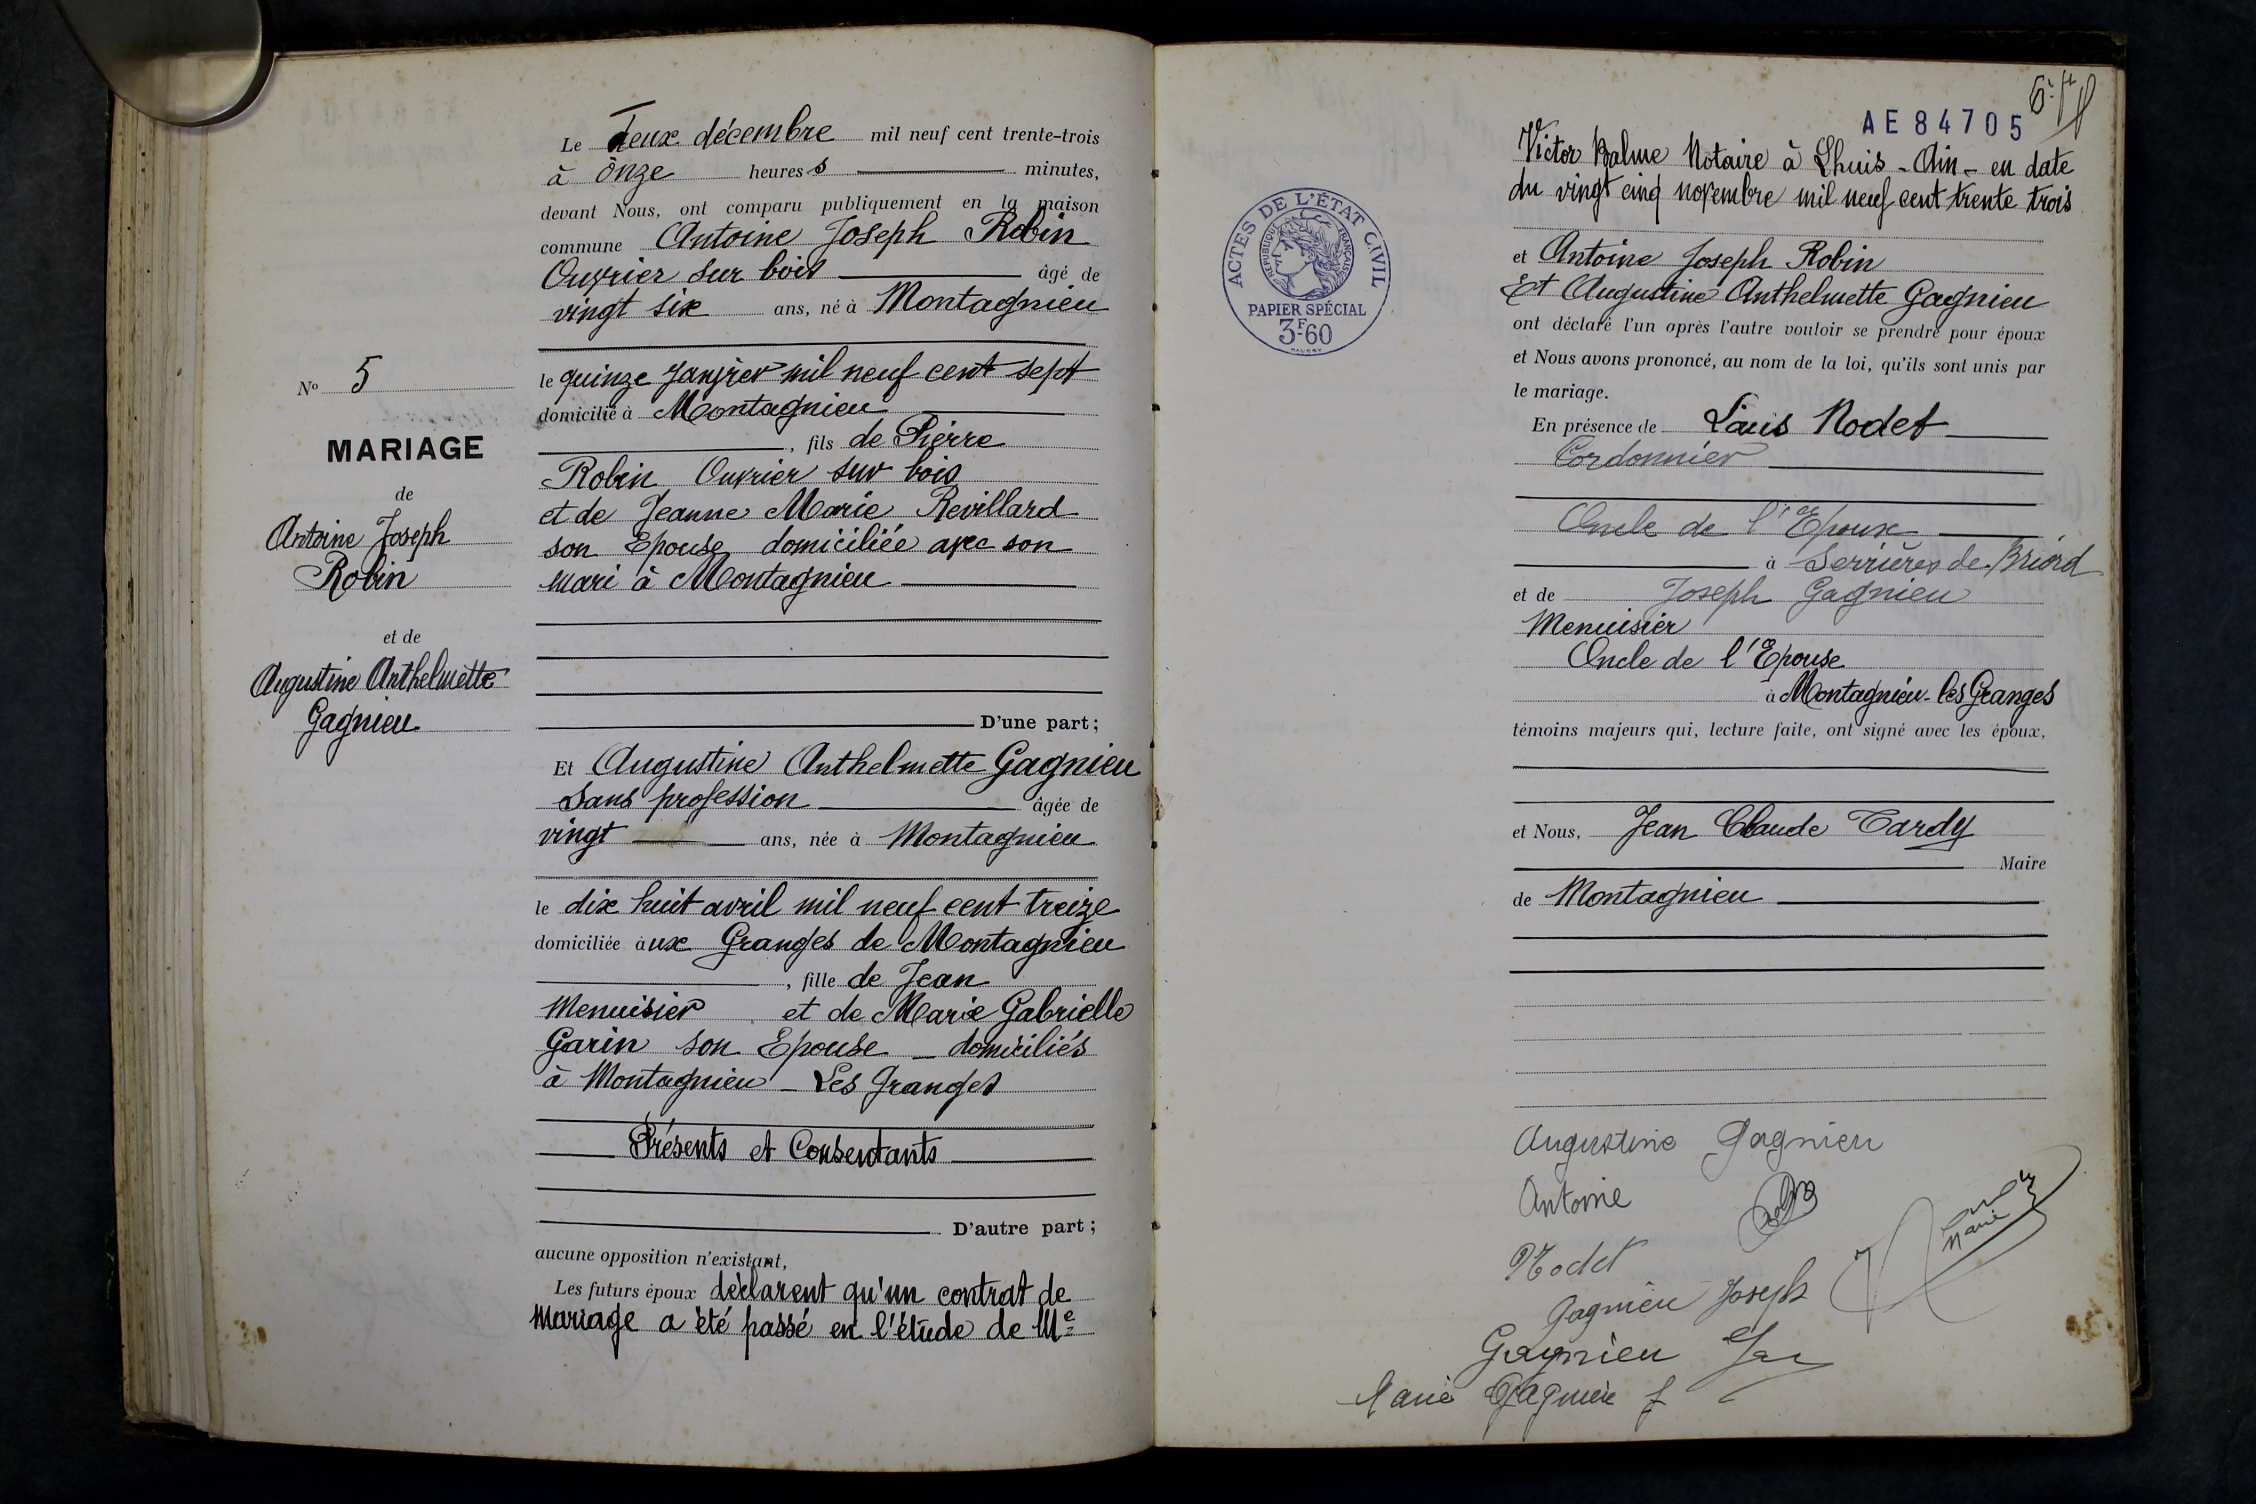 Le deux décembre mil neuf cent trente-trois
à onze heures s minutes,
devant Nous, ont comparu publiquement en la maison
commune Antoine Joseph Robin
Ouvrier sur bois âgé de
vingt six ans, né à Montagnieu
le quinze Janvier mil neuf cent sept
domicilié à Montagnieu
, fils de Pierre
Robin Ouvrier sur bois
et de Jeanne Marie Revillard
son Epouse domiciliée avec son
mari à Montagnieu
D'une part;
Et Augustine Anthelmette Gagnieu
Sans profession âgée de
vingt ans, née à Montagnieu
le dix huit avril mil neuf cent treize
domiciliée aux Granges de Montagnieu
, fille de Jean
Menuisier et de Marie Gabrielle
Garin son Epouse _ domiciliés
à Montagnieu _ Les Granges
Présents et Consentants
D'autre part;
aucune opposition n'existant,
Les futurs époux déclarent qu'un contrat de
mariage a été passé en l'étude de Me
No 5
MARIAGE
de
Antoine Joseph
Robin
et de
Augustine Anthelmette
Gagnieu
AE84705
Victor Balme Notaire à Lhuis - Ain - en date
du vingt cinq novembre mil neuf cent trente trois
et Antoine Joseph Robin
Et Augustine Anthelmette Gagnieu
ont déclaré l'un après l'autre vouloir se prendre pour époux
et Nous avons prononcé, au nom de la loi, qu'ils sont unis par
le mariage.
En présence de Louis Nodet
Cordonnier
Oncle de l'Epoux
à Serrières de Briord
et de Joseph Gagnieu
Menuisier
Oncle de l'Epouse
à Montagnieu-les Granges
témoins majeurs qui, lecture faite, ont signé avec les époux,
et Nous, Jean Claude Tardy
Maire
de Montagnieu
ACTES DE L'ÉTAT CIVIL
RÉPUBLIQUE FRANÇAISE
PAPIER SPÉCIAL
3F60
Augustine Gagnieu
Antoine Robin
Nodet
Gagnieu Joseph
Gagnieu
Marie Gagnieu